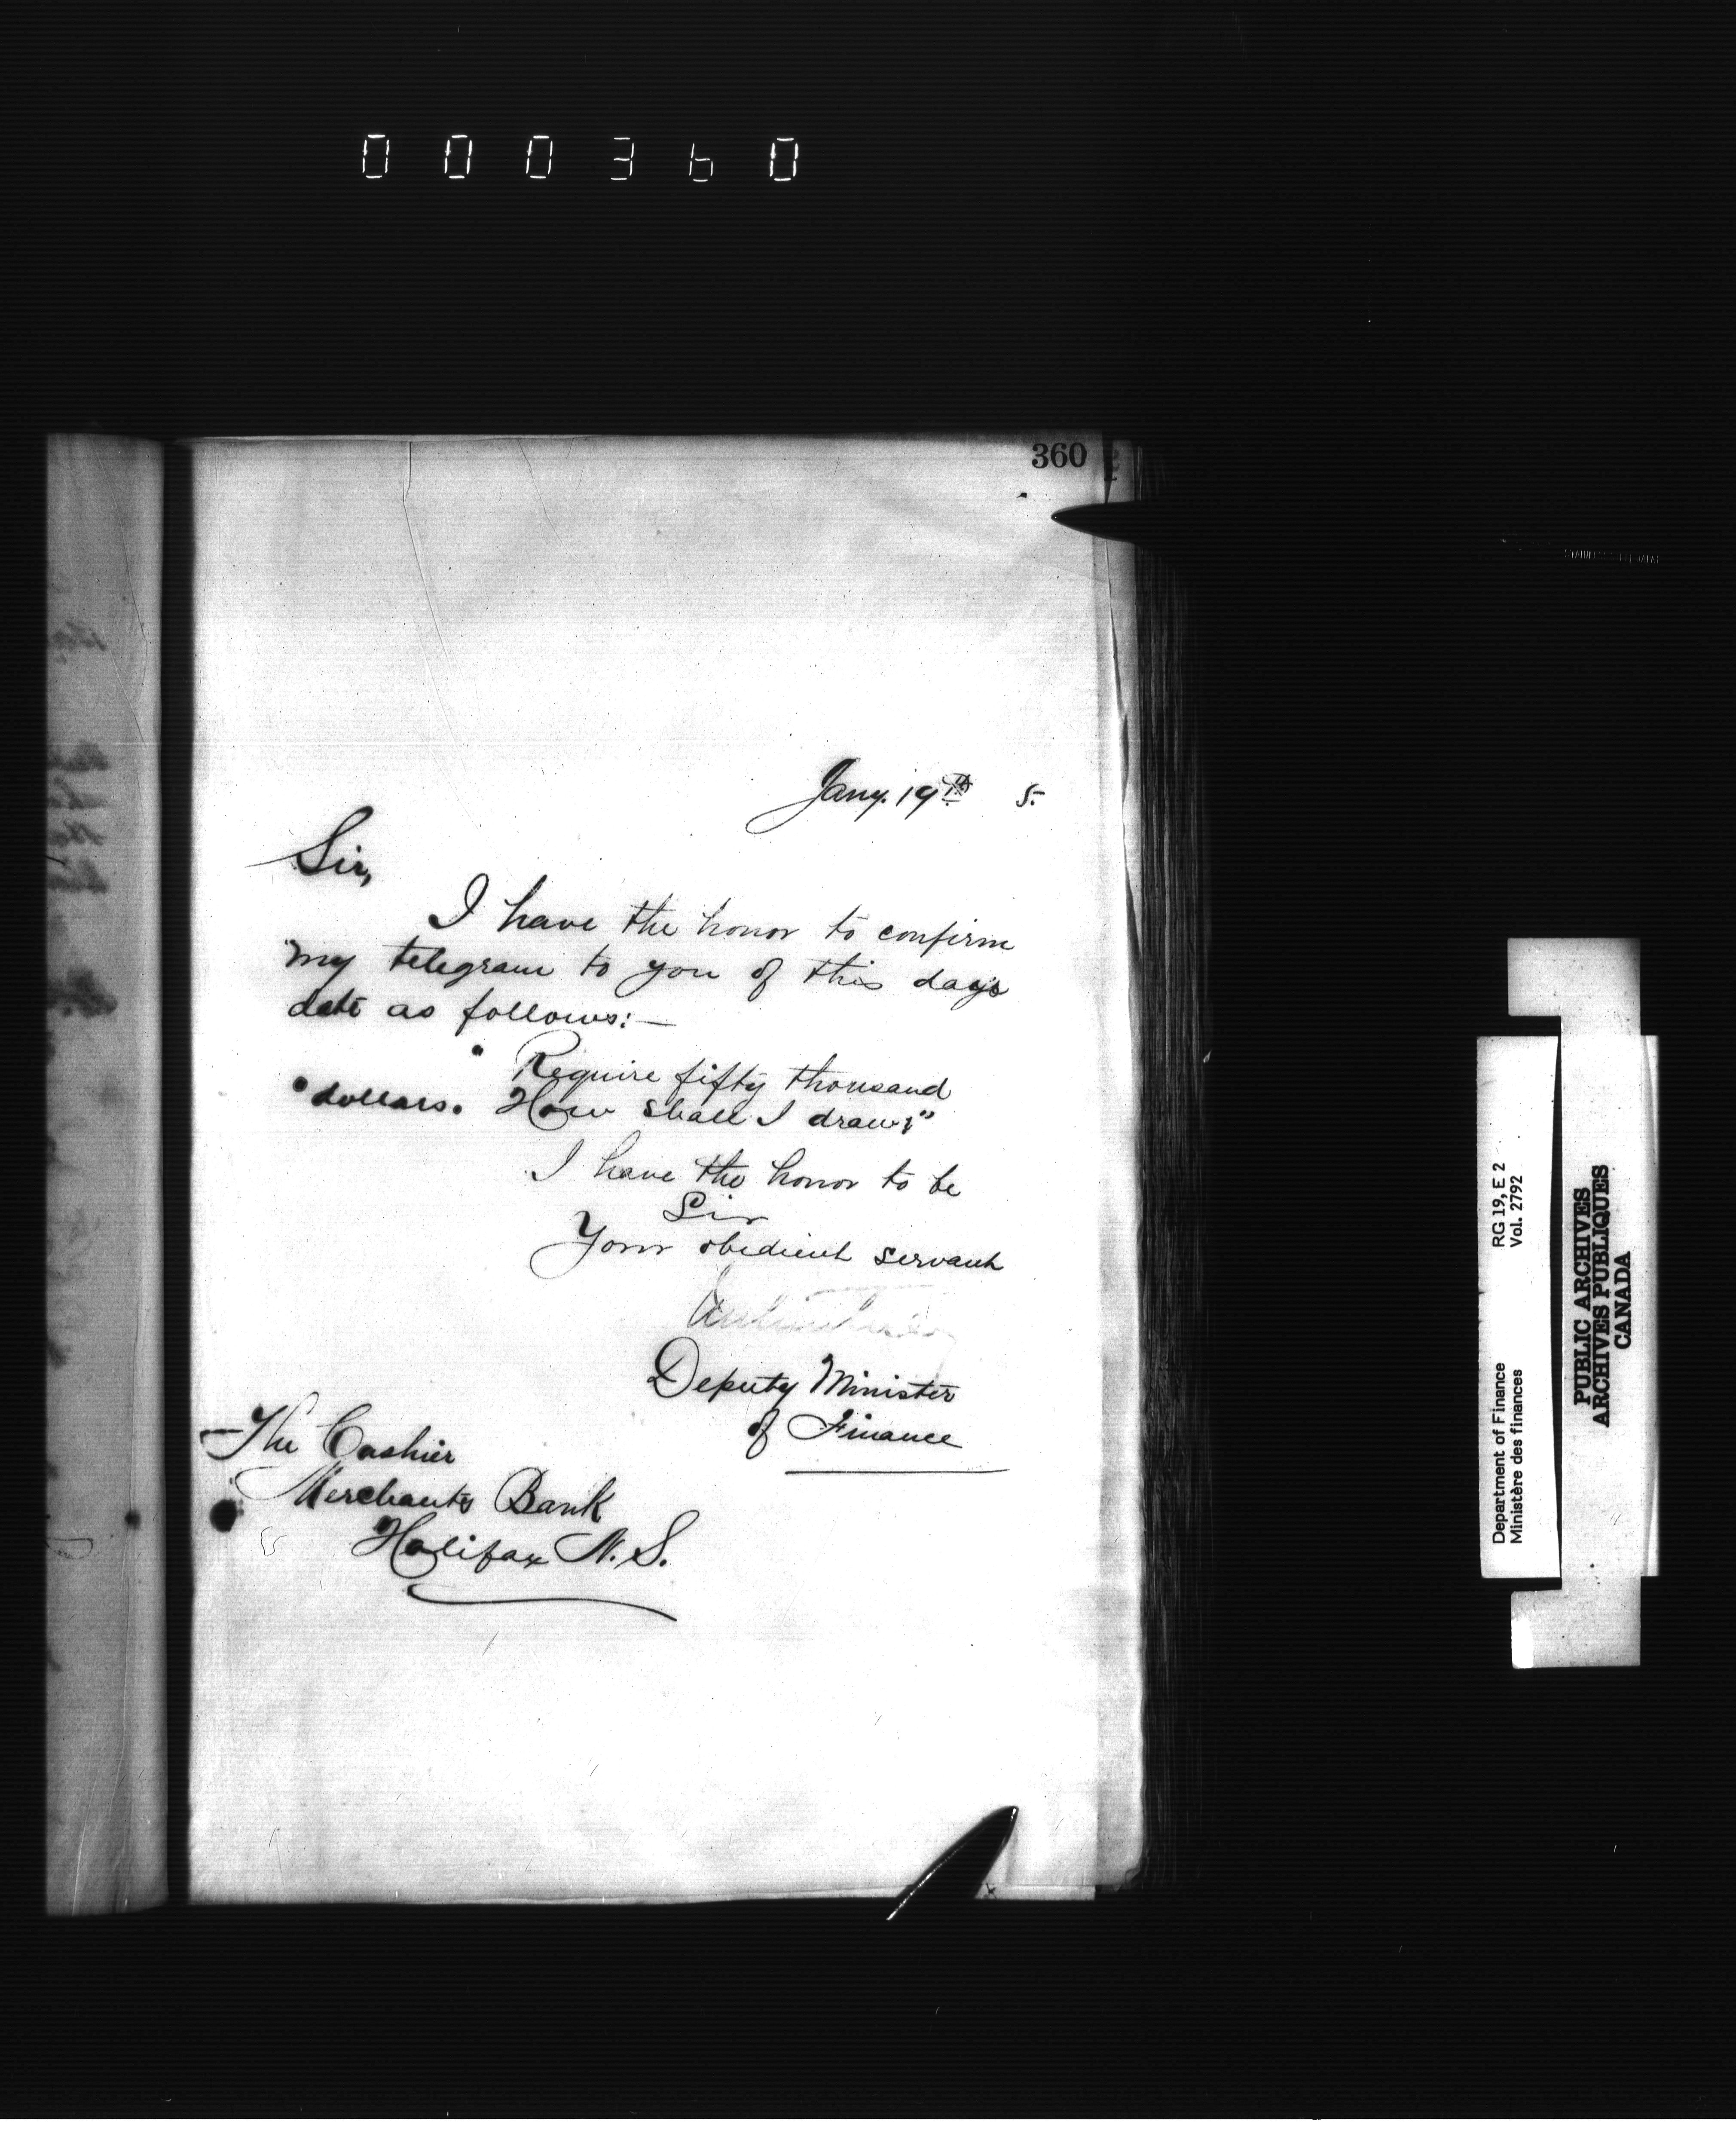 000360
360
Jany. 19th 5.
Sir,
I have the honor to confirm
my telegram to you of this days
date as follows:—
" Require fifty thousand
"dollars. How shall I draw?"
I have the honor to be
Sir
Your obedient servant
Deputy Minister
of Finance
The Cashier
Merchants Bank
Halifax N. S.
Department of Finance RG 19, E 2
Ministère des finances Vol. 2792
PUBLIC ARCHIVES
ARCHIVES PUBLIQUES
CANADA